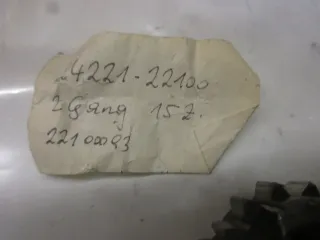 24221-22100
2 Gang 15 Z.
221 000 93